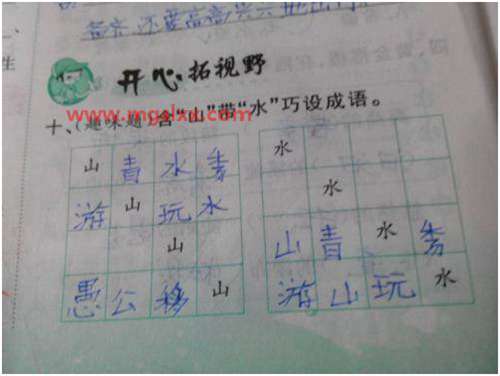 开心拓视野
www.mgslxx.com
十、(趣味题)含“山”带“水”巧设成语。
山青水秀
游山玩水
山
愚公移山
水
水
山青水秀
游山玩水